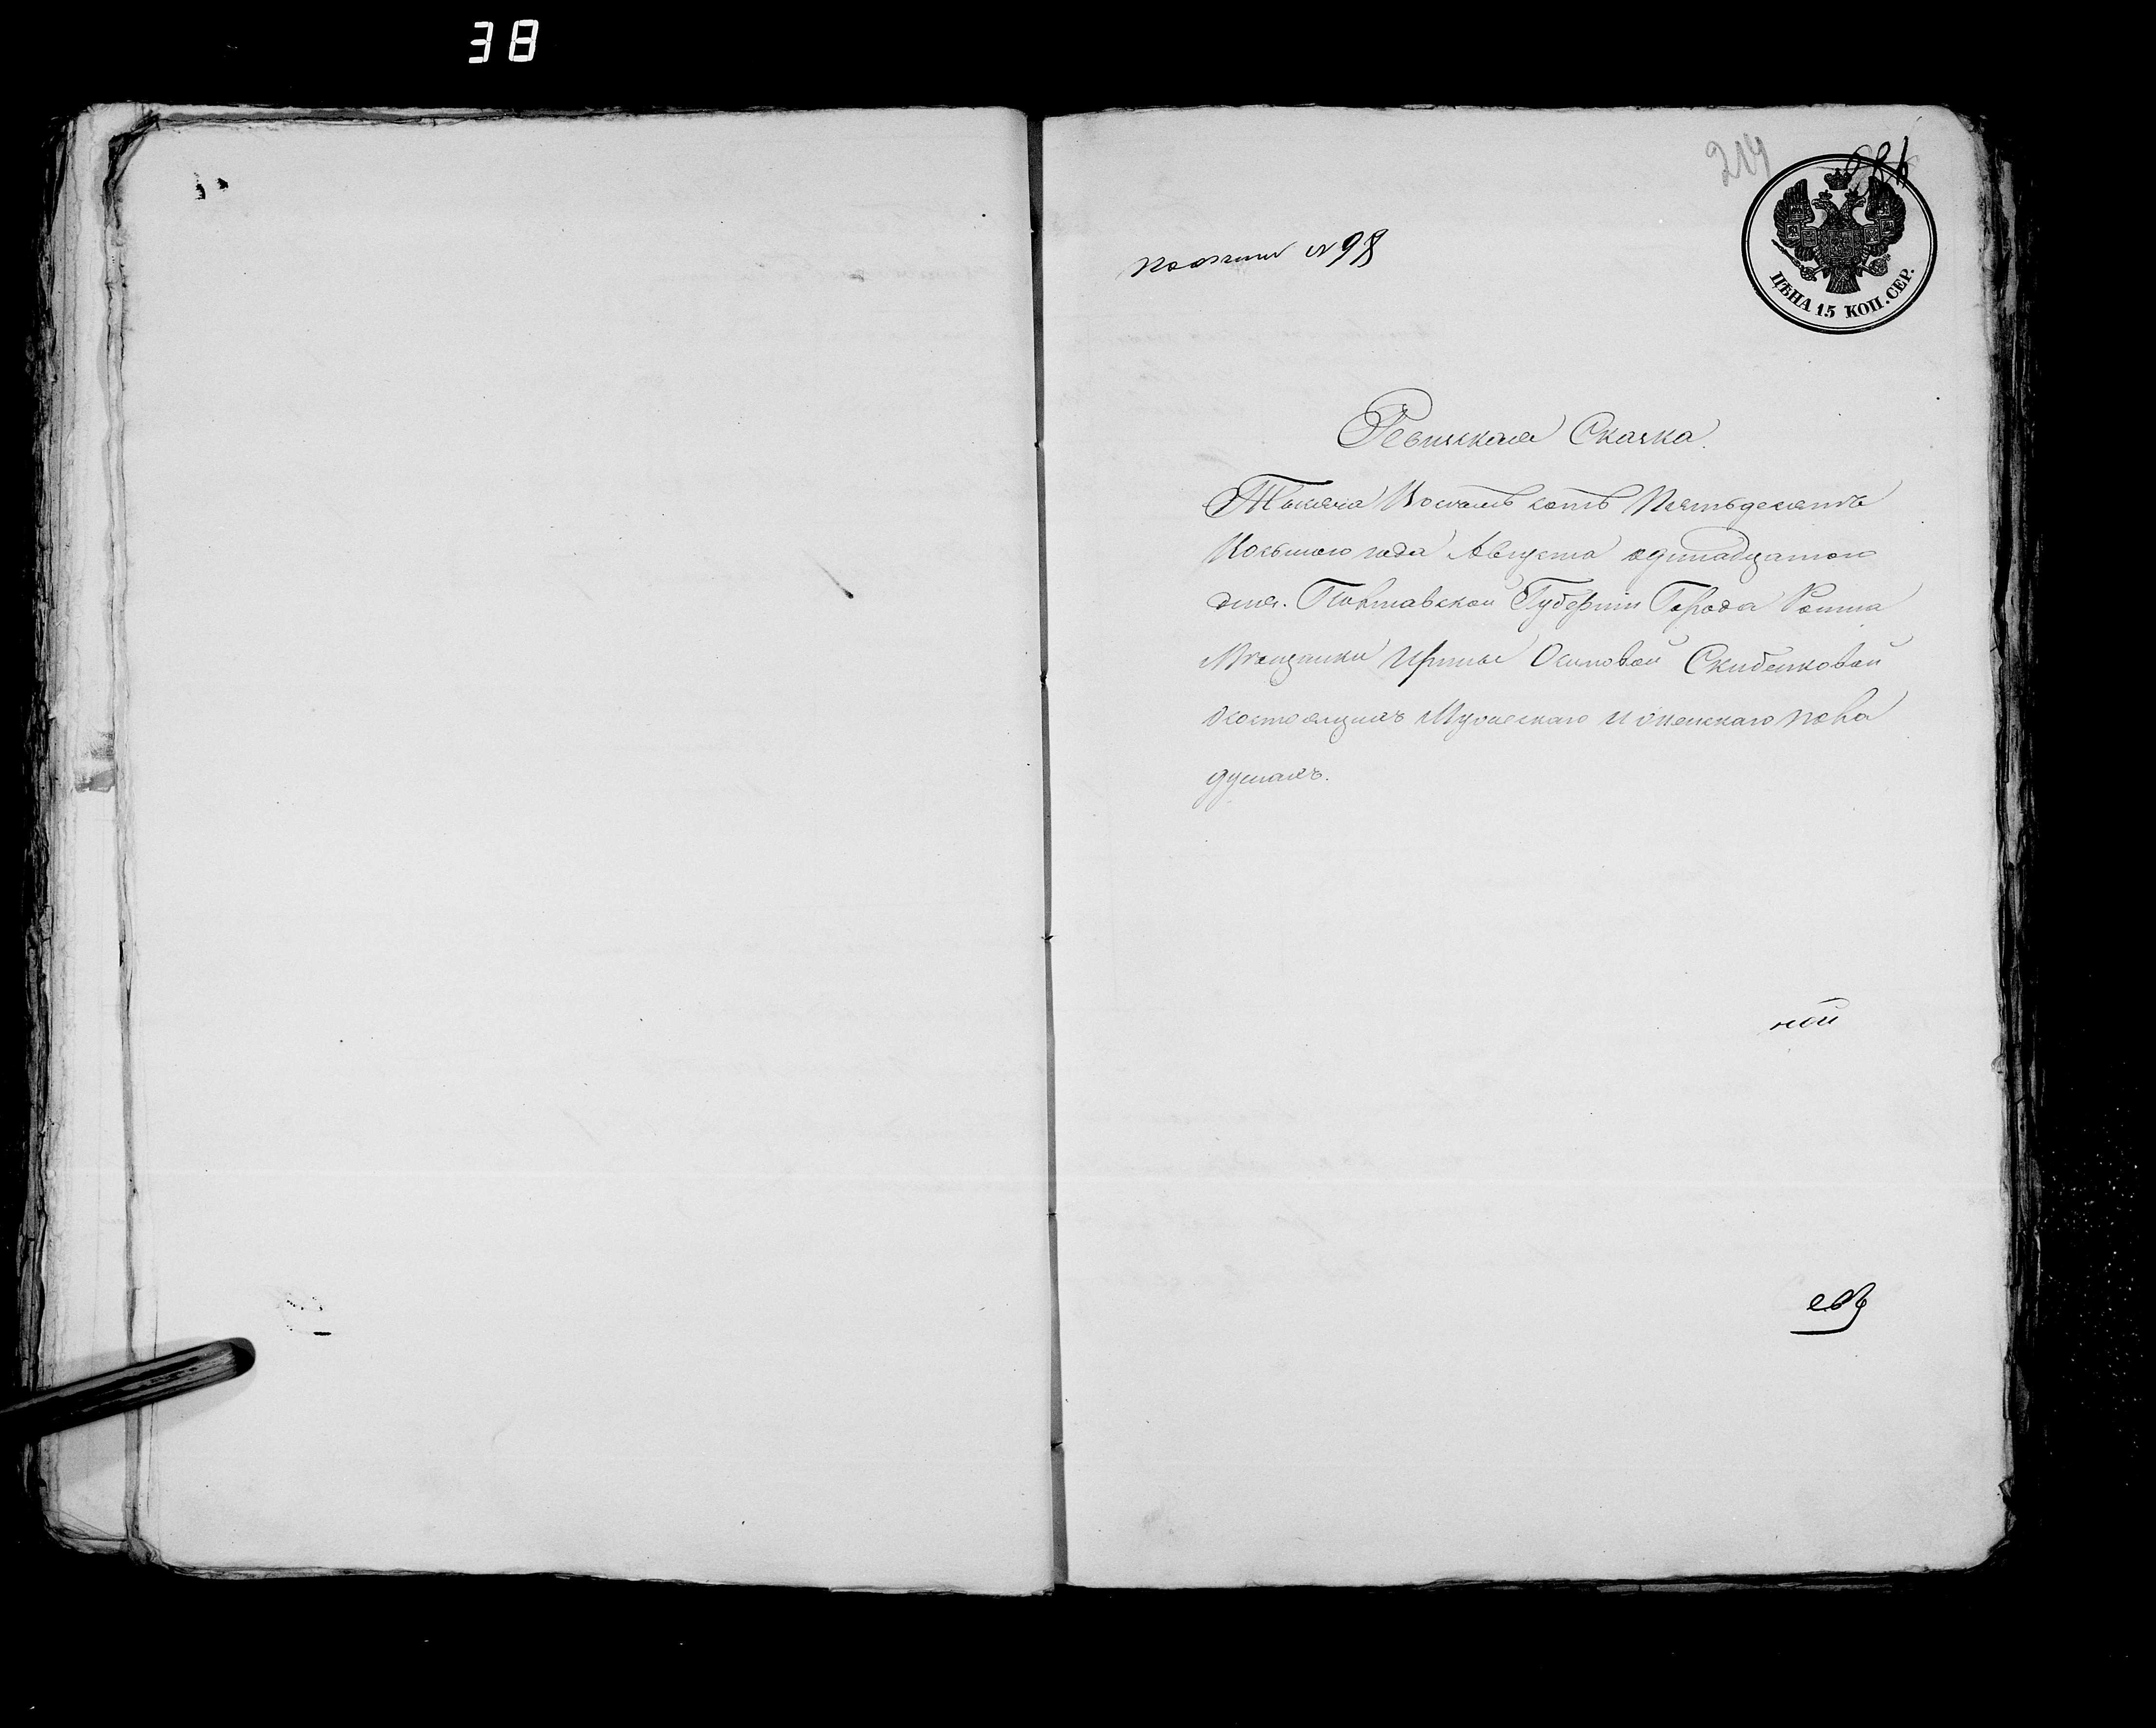 38
214
№ 98
ЦѢНА 15 КОП. СЕР.
Ревизская Сказка.
Тысяча Восемь сотъ Пятьдесятъ
Восьмого года Августа одинадцатого
дня. Полтавской Губерніи Города Ромна
Мещанки Ирины Осиповой Скибенковой
о состоящихъ Мужескаго и женскаго пола
душахъ.
ной
евъ